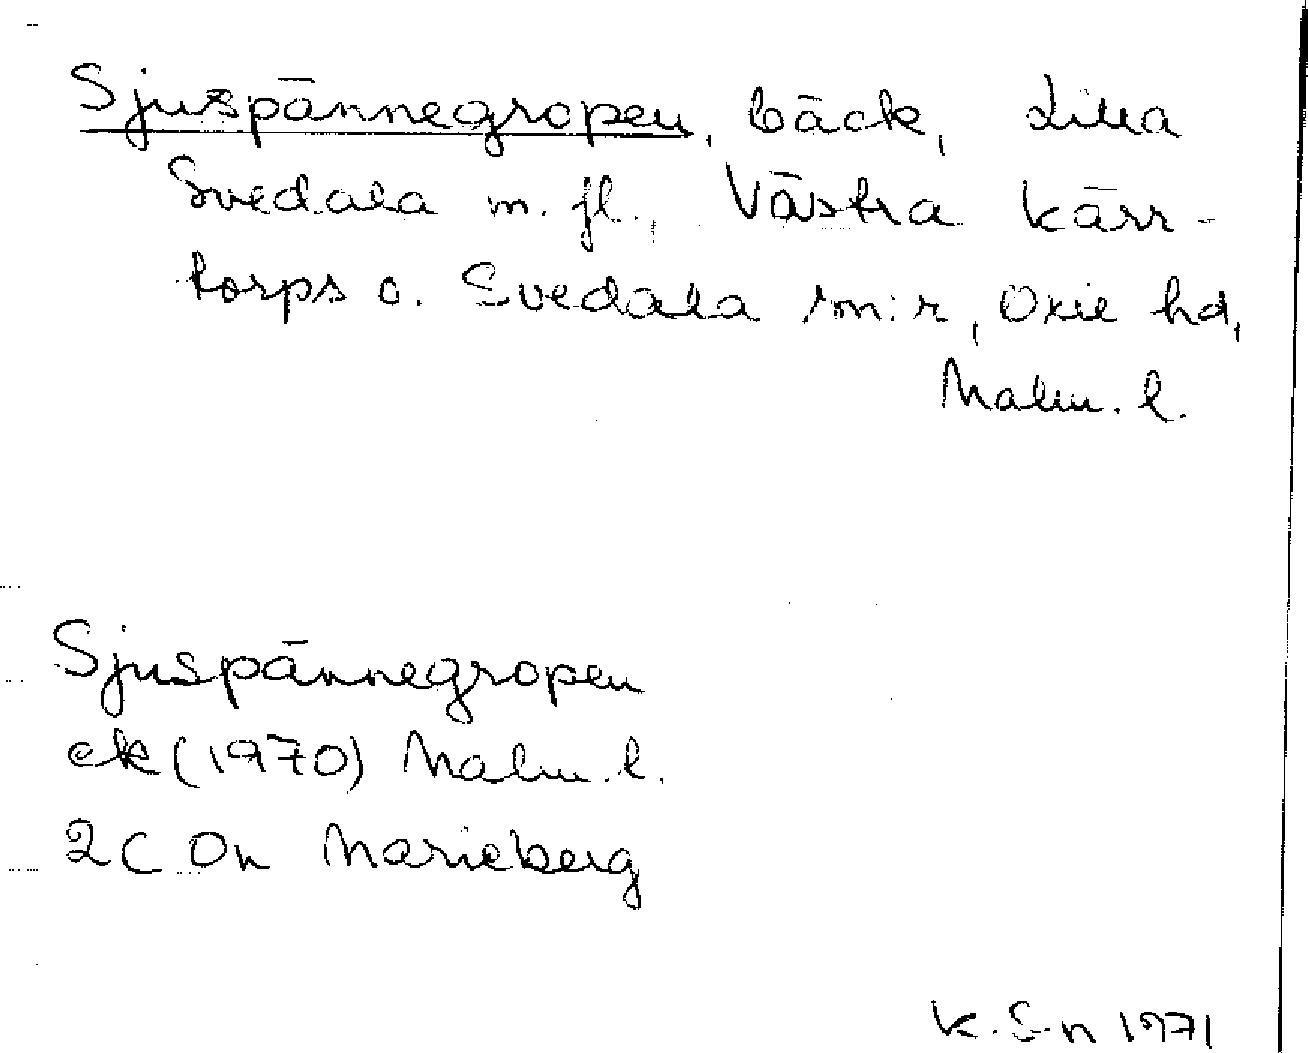 Sjuspännegropen, bäck, Lilla
Svedala m. fl., Västra Kärr-
torps o. Svedala sn:r, Oxie hd,
Malm. l.
Sjuspännegropen
ek (1970) Malm. l.
2C On Marieberg
K. S-n 1971